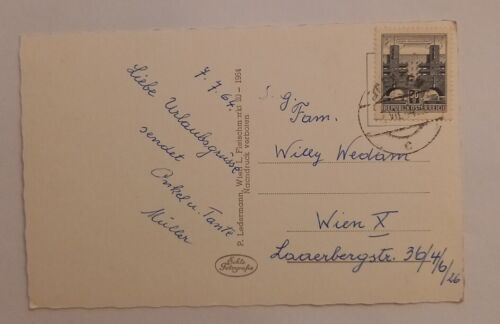 7.7.64.
Liebe Urlaubsgrüsse
sendet
Onkel u. Tante
Müller
P. Ledermann, Wien I., Fleischmarkt 20 – 1964
Nachdruck verboten
Echte
Fotografie
REPUBLIK ÖSTERREICH
S. g.
Fam.
Willy Wedam
Wien X
Laaerbergstr. 36/4/6/26